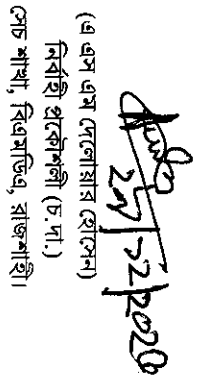 (এ এস এম দেলোয়ার হোসেন)
নির্বাহী প্রকৌশলী (চ.দা.)
সেচ শাখা, বিএমডিএ, রাজশাহী।